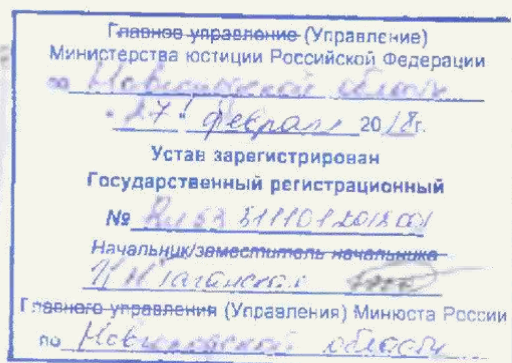 Главное управление (Управление)
Министерства юстиции Российской Федерации
по Новгородской области
"27" февраля 2018г.
Устав зарегистрирован
Государственный регистрационный
№ RU 53 311101 2018 001
Начальник/заместитель начальника
Главного управления (Управления) Минюста России
по Новгородской области